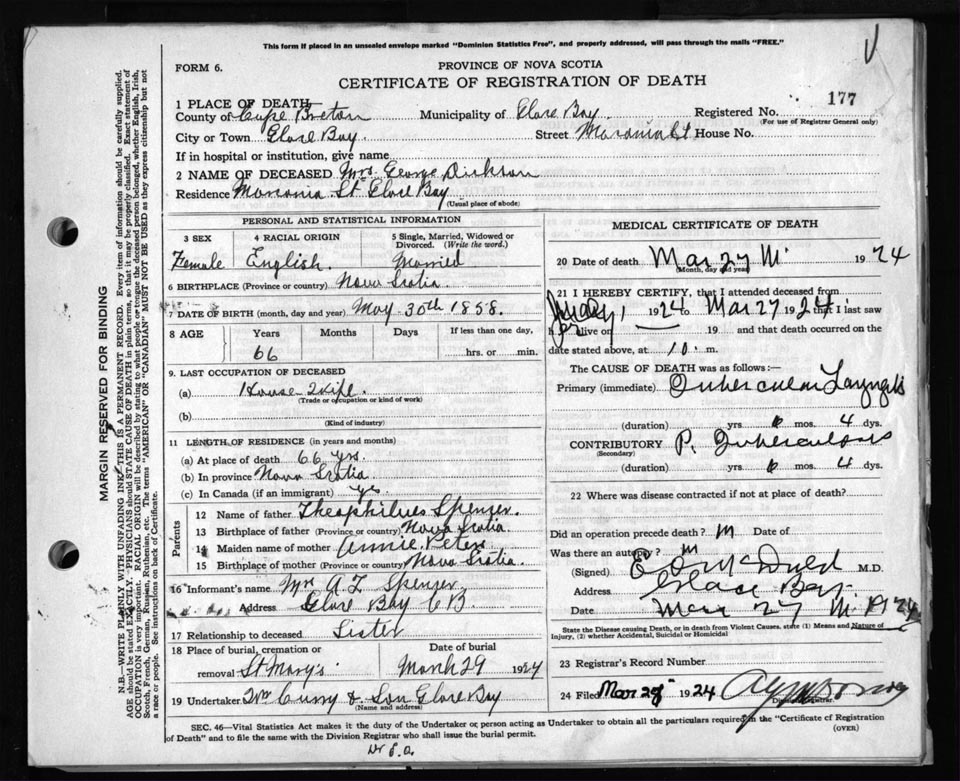 This form if placed in an unsealed envelope marked "Dominion Statistics Free", and properly addressed, will pass through the mails "FREE."
FORM 6.
PROVINCE OF NOVA SCOTIA
CERTIFICATE OF REGISTRATION OF DEATH
177
1 PLACE OF DEATH
County of Cape Breton Municipality of Glace Bay Registered No.
(For use of Registrar General only)
City or Town Glace Bay Street Marconia St House No.
If in hospital or institution, give name
2 NAME OF DECEASED Mrs George Dickson
Residence Marconia St Glace Bay
(Usual place of abode)
PERSONAL AND STATISTICAL INFORMATION
3 SEX Female
4 RACIAL ORIGIN English.
5 Single, Married, Widowed or Divorced. (Write the word.) Married
6 BIRTHPLACE (Province or country) Nova Scotia.
7 DATE OF BIRTH (month, day and year) May 30th 1858.
8 AGE Years Months Days If less than one day,
66 hrs. or min.
9. LAST OCCUPATION OF DECEASED
(a) House Wife.
(Trade or occupation or kind of work)
(b)
(Kind of industry)
11 LENGTH OF RESIDENCE (in years and months)
(a) At place of death 66 yrs.
(b) In province Nova Scotia.
(c) In Canada (if an immigrant) yes.
Parents
12 Name of father Theophilus Spencer.
13 Birthplace of father (Province or country) Nova Scotia.
14 Maiden name of mother Annie Peters
15 Birthplace of mother (Province or country) Nova Scotia.
16 Informant's name Mrs A Z Spencer
Address Glace Bay CB.
17 Relationship to deceased Sister
18 Place of burial, cremation or removal St Mary's
Date of burial March 29 1924
19 Undertaker Wm Curry & Son Glace Bay
(Name and address)
MEDICAL CERTIFICATE OF DEATH
20 Date of death Mar 27 1924
(Month, day and year)
21 I HEREBY CERTIFY, that I attended deceased from
1 1924 to Mar 27 1924 that I last saw
her alive on 19 and that death occurred on the
date stated above, at 10 m.
The CAUSE OF DEATH was as follows:—
Primary (immediate) Tubercular Laryngitis
(duration) yrs 6 mos. 4 dys.
CONTRIBUTORY P. Tuberculosis
(Secondary)
(duration) yrs 6 mos. 4 dys.
22 Where was disease contracted if not at place of death?
Did an operation precede death? Date of
Was there an autopsy?
(Signed) M.D.
Address Glace Bay
Date Mar 27 1924
State the Disease causing Death, or in death from Violent Causes, state (1) Means and Nature of Injury, (2) whether Accidental, Suicidal or Homicidal
23 Registrar's Record Number
24 Filed Mar 28 1924
Division Registrar.
SEC. 46—Vital Statistics Act makes it the duty of the Undertaker or person acting as Undertaker to obtain all the particulars required in the "Certificate of Registration of Death" and to file the same with the Division Registrar who shall issue the burial permit.
(OVER)
MARGIN RESERVED FOR BINDING
N.B.—WRITE PLAINLY WITH UNFADING INK—THIS IS A PERMANENT RECORD. Every item of information should be carefully supplied.
AGE should be stated EXACTLY. PHYSICIANS should STATE CAUSE OF DEATH in plain terms, so that it may be properly classified. Exact statement of
OCCUPATION is very important. RACIAL ORIGIN will be described by stating to what people or tongue the deceased person belonged, whether English, Irish,
Scotch, French, German, Russian, Ruthenian, etc. The terms "AMERICAN" OR "CANADIAN" MUST NOT BE USED as they express citizenship but not
a race or people. See instructions on back of Certificate.